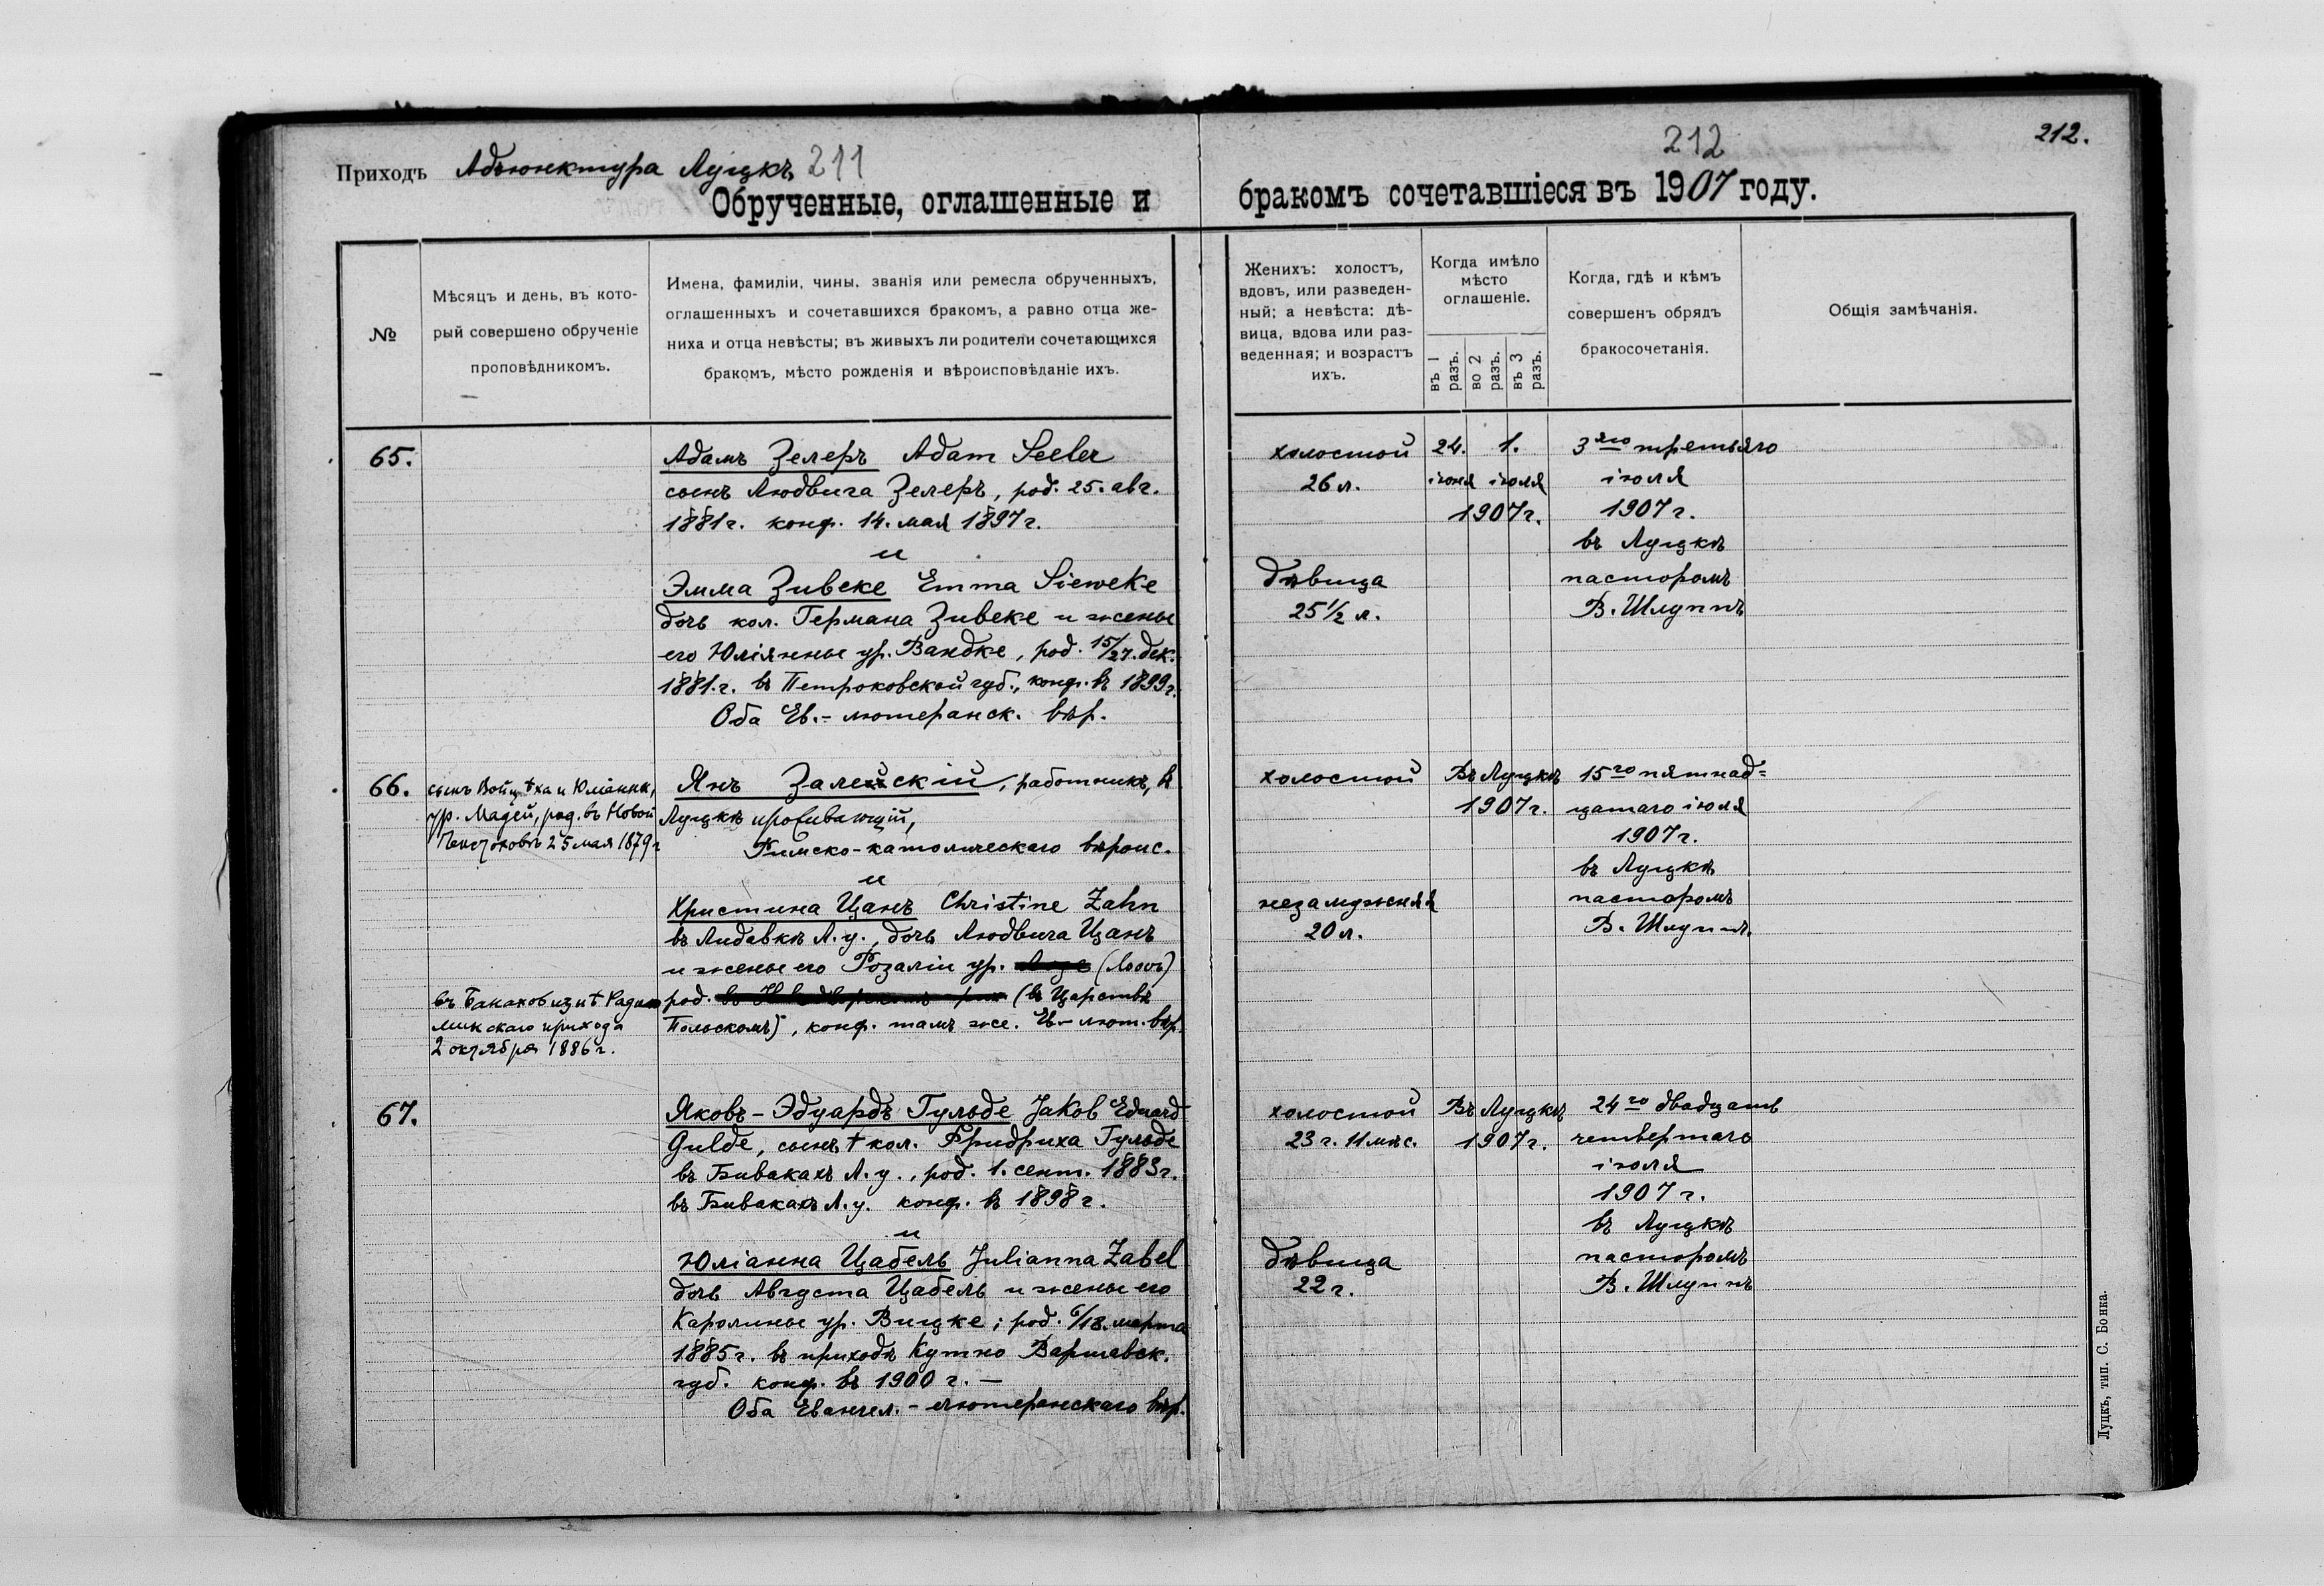 Приходъ Адъюнктура Луцкъ 211
212
212.
Обрученные, оглашенные и бракомъ сочетавшіеся въ 1907 году.
№
Мѣсяцъ и день, въ кото-
рый совершено обрученіе
проповѣдникомъ.
Имена, фамиліи, чины, званія или ремесла обрученныхъ,
оглашенныхъ и сочетавшихся бракомъ, а равно отца же-
ниха и отца невѣсты; въ живыхъ ли родители сочетающихся
бракомъ, мѣсто рожденія и вѣроисповѣданіе ихъ.
Женихъ: холостъ,
вдовъ, или разведен-
ный; а невѣста: дѣ-
вица, вдова или раз-
веденная; и возрастъ
ихъ.
Когда имѣло
мѣсто
оглашеніе.
въ 1
разъ.
во 2
разъ.
въ 3
разъ.
Когда, гдѣ и кѣмъ
совершенъ обрядъ
бракосочетанія.
Общія замѣчанія.
65.
Адамъ Зелеръ Adam Seeler
сынъ Людвига Зелеръ, род. 25. авг.
1881 г. конф. 14. мая 1897 г.
и
Эмма Зивеке Emma Sieweke
дочь кол. Германа Зивеке и жены
его Юліянны ур. Вандке, род. 15/27. дек.
1881. г. въ Петроковской губ., конф. въ 1899 г.
Оба Ев.- лютеранск. вѣр.
холостой
26 л.
дѣвица
25 1/2 л.
24. 1.
іюня іюля
1907 г.
3яго третьяго
іюля
1907 г.
въ Луцкѣ
пасторомъ
В. Шлуппъ
66.
сынъ Войцѣха и Юліанны,
ур. Мадей, род. въ Новой
25 мая 1879 г
Янъ Залейскій, работникъ, въ
Луцкѣ проживающій,
Римско-католическаго вѣроис.
и
Христина Цанъ Christine Zahn
въ Лидавкѣ Л. у., дочь Людвига Цанъ
и жены его Розаліи ур. (Лоовъ)
въ
минскаго прихода
2 октября 1886 г.
род. (въ Царствѣ
Польскомъ), конф. тамъ же. Ев.- лют. вѣр.
холостой
незамужняя
20 л.
Въ Луцкѣ
1907 г.
15го пятнад-
цатаго іюля
1907 г.
въ Луцкѣ
пасторомъ
В. Шлуппъ.
67.
Яковъ-Эдуардъ Гульде Jakob Eduard
Gulde, сынъ † кол. Фридриха Гульде
въ Бивакахъ Л. у., род. 1. сент. 1883 г.
въ Бивакахъ Л. у. конф. въ 1898 г.
и
Юліанна Цабель Julianna Zabel
дочь Августа Цабель и жены его
Каролины ур. Вицке; род. 6/18. марта
1885 г. въ приходѣ Кутно Варшавск.
губ. конф. въ 1900 г. —
Оба Евангел.- лютеранскаго вѣр.
холостой
23 г. 11 мѣс.
дѣвица
22 г.
Въ Луцкѣ
1907 г.
24го двадцать
четвертаго
іюля
1907 г.
въ Луцкѣ
пасторомъ
В. Шлуппъ
Луцкъ, тип. С. Бонка.